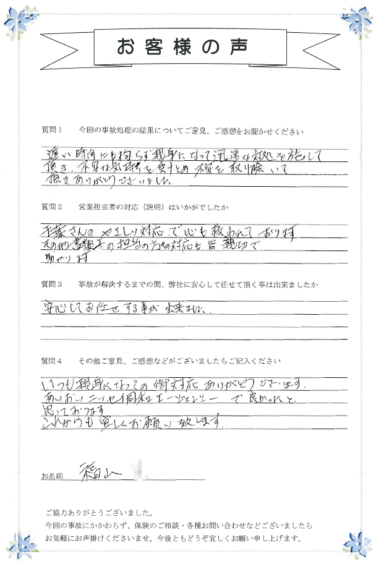 お客様の声
質問1 今回の事故処理の結果についてご意見、ご感想をお聞かせください
遅い時間にも拘らず親身になって迅速な対処を施して
頂き、不安な気持を受けとめ 不安を取り除いて
頂きありがとうございました。
質問2 営業担当者の対応（説明）はいかがでしたか
千葉さんの やさしい対応で心も救われております
その他 の担当の方の対応も皆 親切で
助かります
質問3 事故が解決するまでの間、弊社に安心して任せて頂く事は出来ましたか
安心してお任せする事が 出来ました。
質問4 その他ご意見、ご感想などがございましたらご記入ください
いつも親身になっての御対応ありがとうございます。
あいおいニッセイ同和 エージェンシー で良かったと
思っております
これからも宜しくお願い致します。
お名前 稲山
ご協力ありがとうございました。
今回の事故にかかわらず、保険のご相談・各種お問い合わせなどございましたら
お気軽にお声掛けくださいませ。今後ともどうぞ宜しくお願い申し上げます。